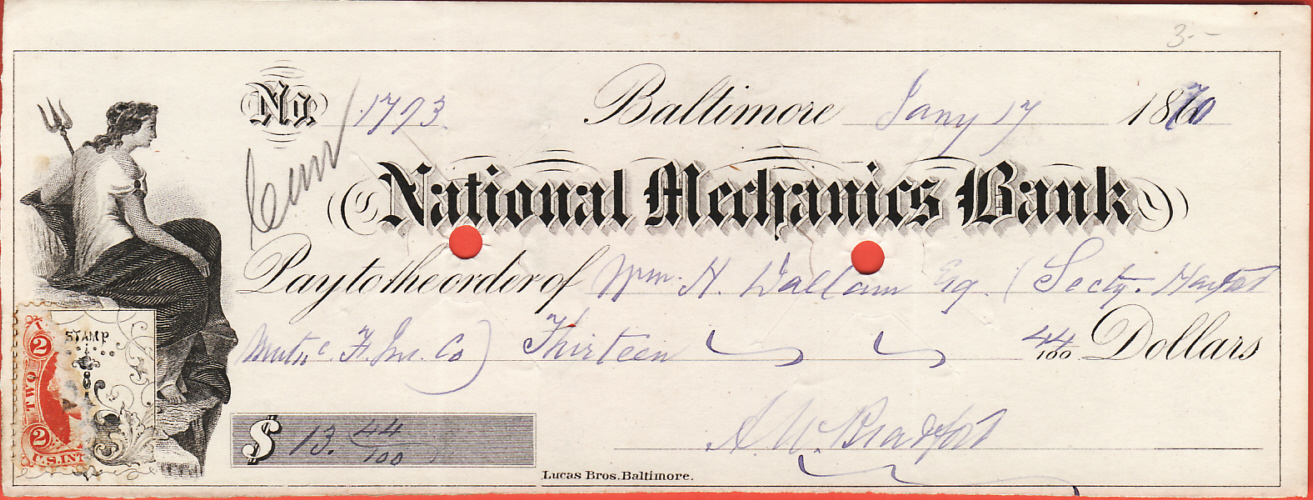 3.-
No. 1793 Baltimore Jany 17 1870
National Mechanics Bank
Pay to the order of Wm. H. Esq. (Secty.
F. Ins. Co) Thirteen 44/100 Dollars
STAMP
2 TWO 2
U.S. INT
$ 13. 44/100
A. W. Bradford
Lucas Bros. Baltimore.